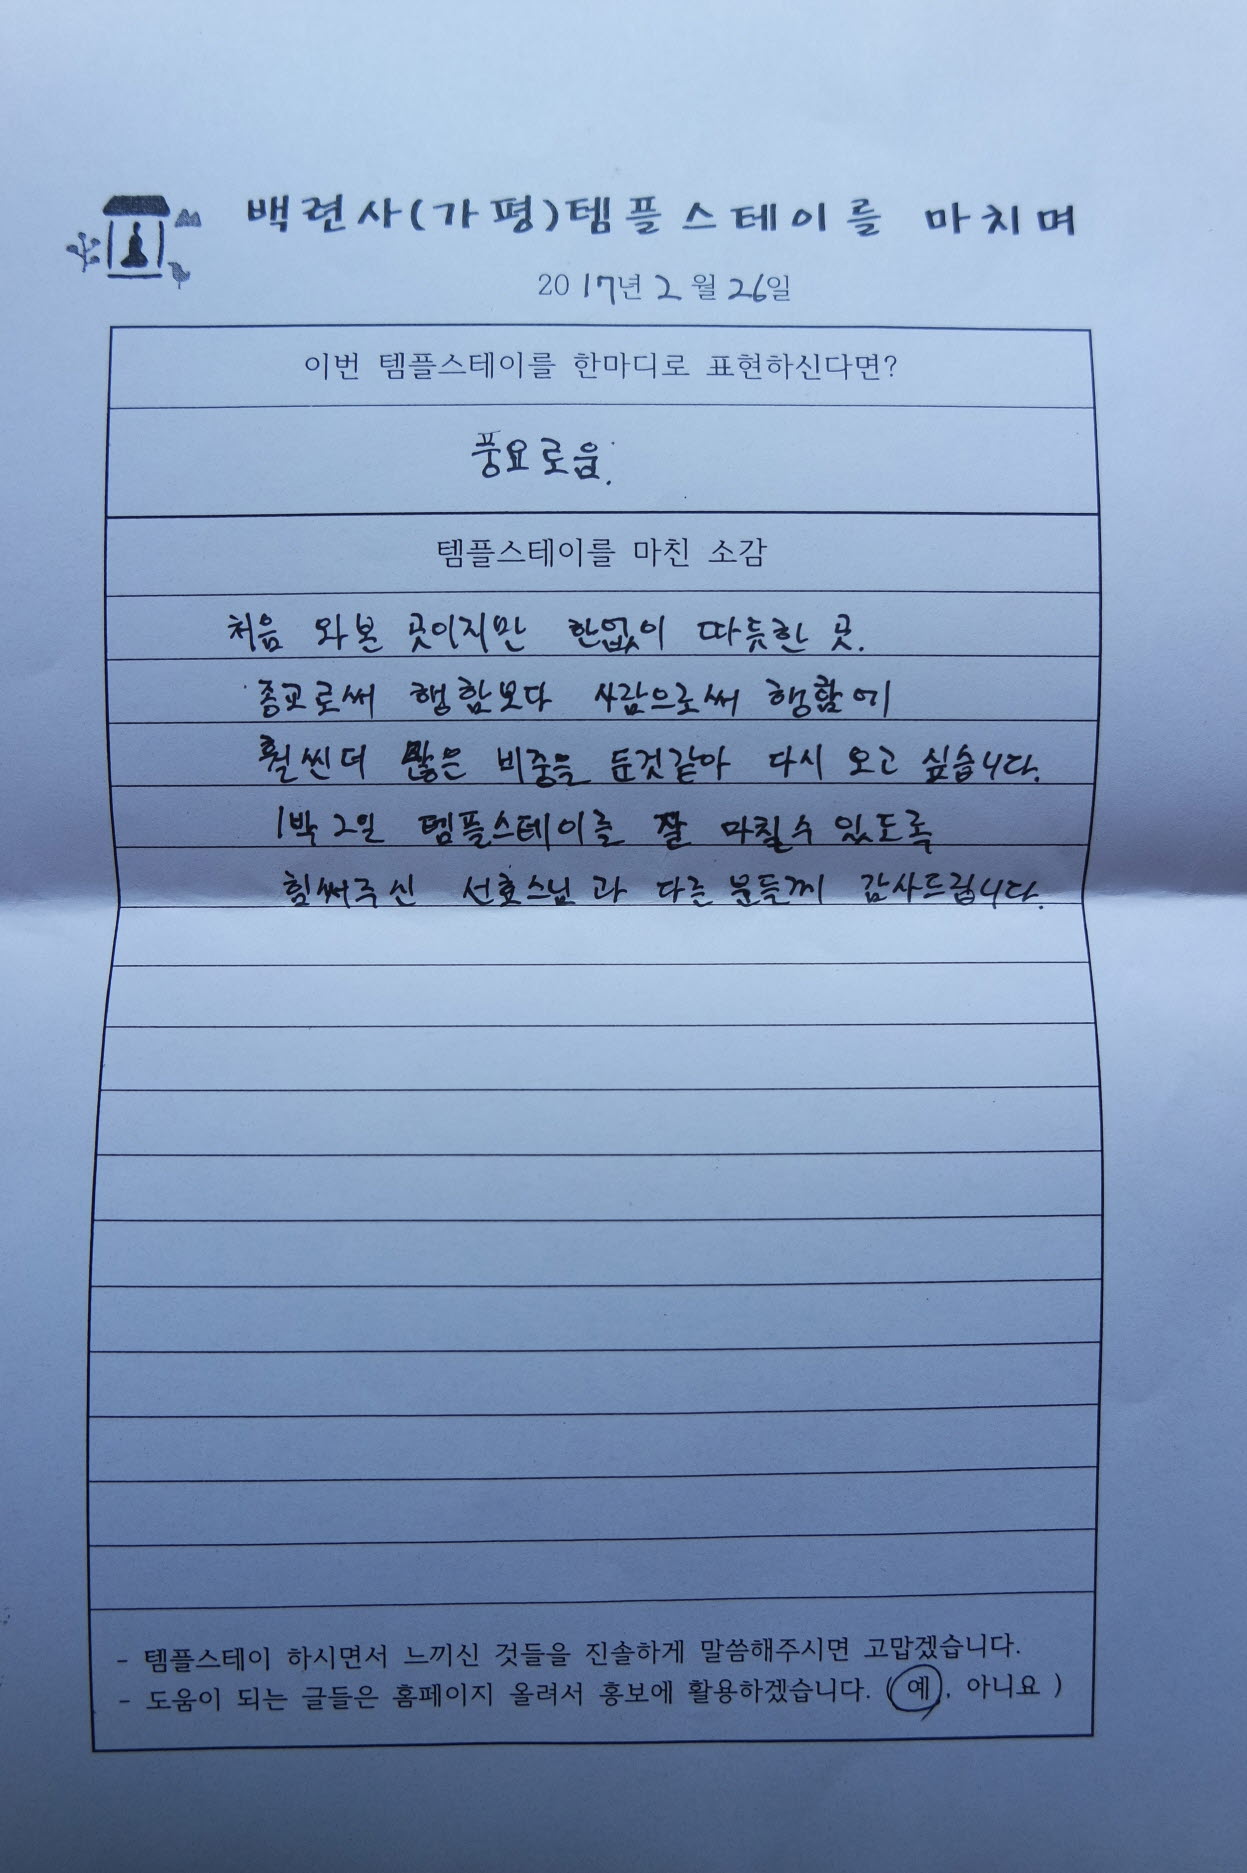 백련사(가평)템플스테이를 마치며
2017년 2월 26일
이번 템플스테이를 한마디로 표현하신다면?
풍요로움.
템플스테이를 마친 소감
처음 와본 곳이지만 한없이 따듯한 곳.
종교로써 행함보다 사람으로써 행함에
훨씬더 많은 비중을 둔것같아 다시 오고 싶습니다.
1박 2일 템플스테이를 잘 마칠수 있도록
힘써주신 선효스님과 다른 분들께 감사드립니다.
- 템플스테이 하시면서 느끼신 것들을 진솔하게 말씀해주시면 고맙겠습니다.
- 도움이 되는 글들은 홈페이지 올려서 홍보에 활용하겠습니다. (예, 아니요 )